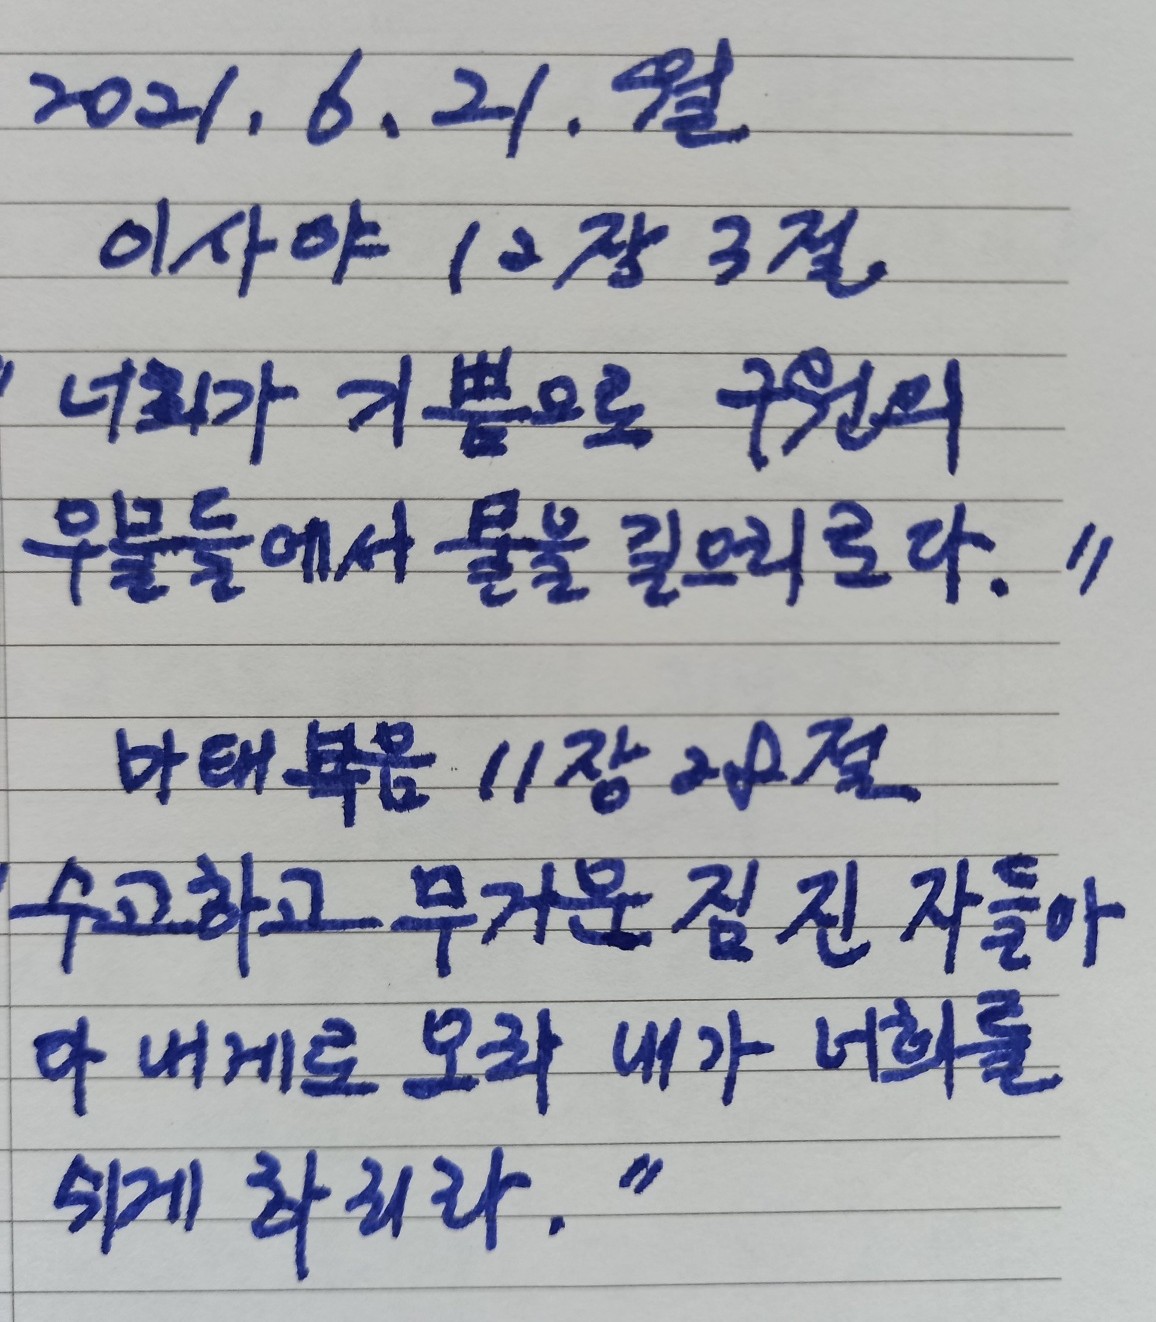 2021. 6. 21. 월
이사야 12장 3절.
"너희가 기쁨으로 구원의
우물들에서 물을 길으리로다."
마태복음 11장 28절
"수고하고 무거운 짐 진 자들아
아 내게로 오라 내가 너희를
쉬게 하리라."